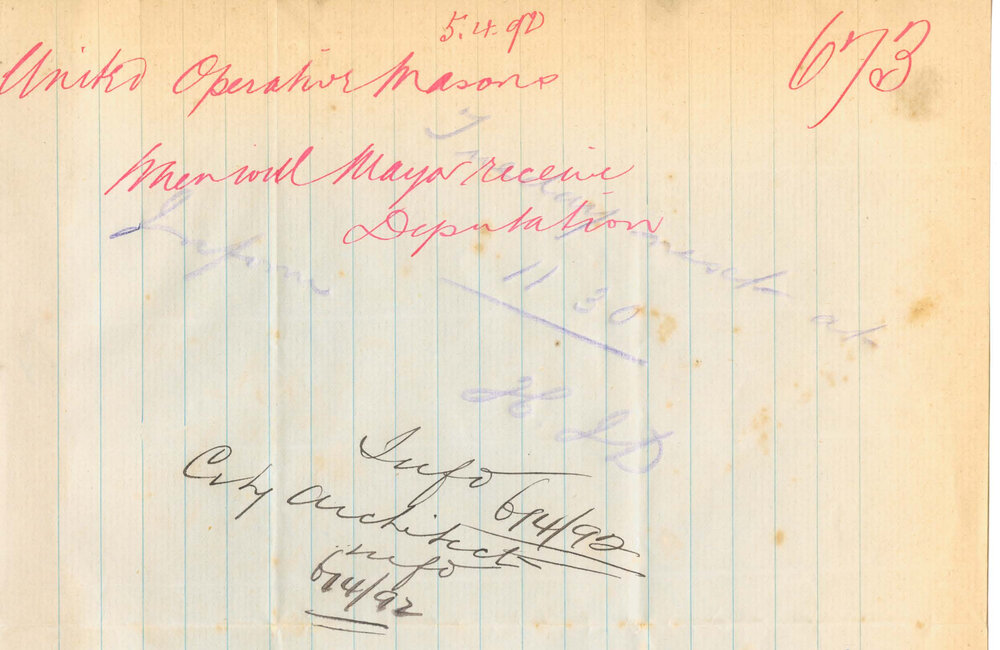 5.4.92
673
United Operative Masons
When will Mayor receive
Deputation
Inform
Tuesday next at
11 30
Info
6/4/92
City Architect
info
6/4/92